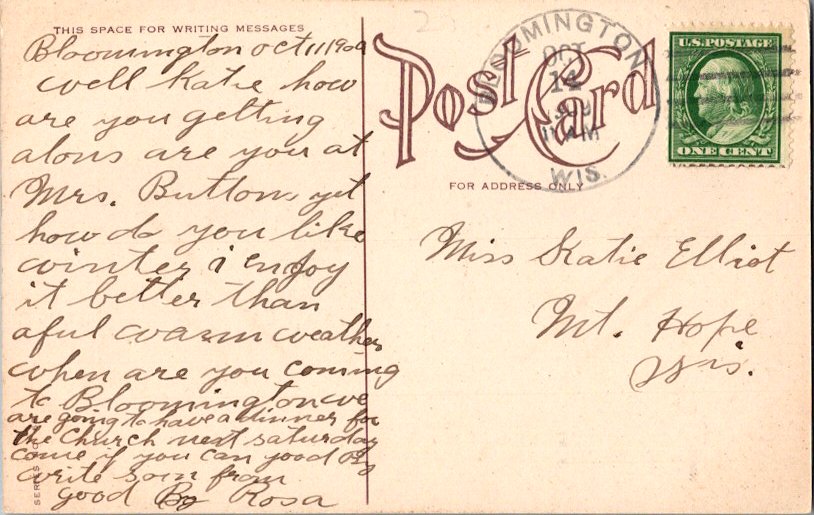 THIS SPACE FOR WRITING MESSAGES
Bloomington Oct 11 1909
well Katie how
are you getting
alons are you at
Mrs. Button yet
how do you like
winter i enjoy
it better than
aful warm weather
when are you coming
to Bloomington we
are going to have a dinner for
the Church next saturday
come if you can good By
write soon from
good By Rosa
SERIES
Post Card
FOR ADDRESS ONLY
BLOOMINGTON
OCT
14
AM
WIS.
U.S. POSTAGE
ONE CENT
Miss Katie Elliot
Mt. Hope
Wis.